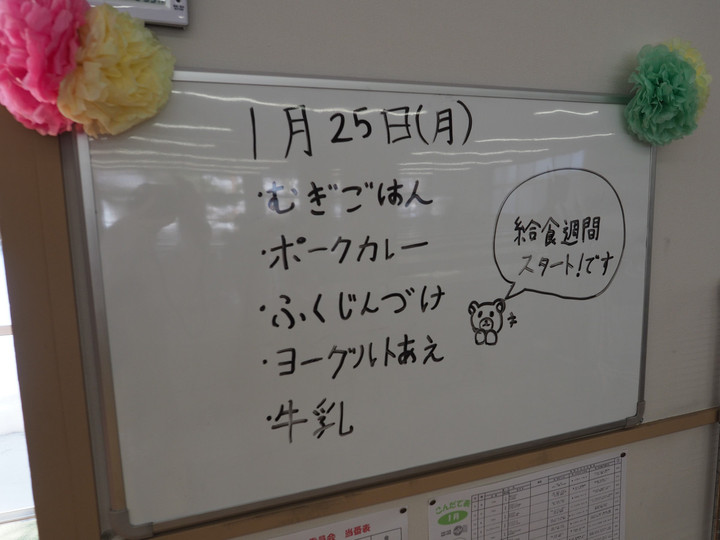 1月25日(月)
・むぎごはん
・ポークカレー
・ふくじんづけ
・ヨーグルトあえ
・牛乳
給食週間
スタート!です
当番表
こんだて
1月